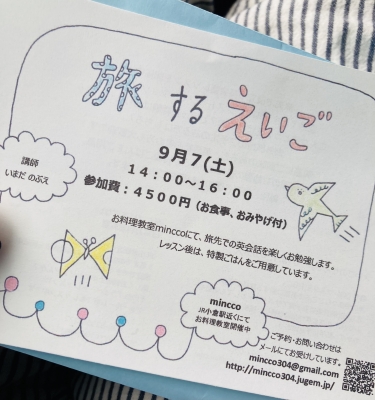 旅するえいご
9月7(土)
14:00～16:00
参加費：4500円（お食事、おみやげ付）
講師
いまだ のぶえ
お料理教室minccoにて、旅先での英会話を楽しくお勉強します。
レッスン後は、特製ごはんをご用意しています。
mincco
JR小倉駅近くにて
お料理教室開催中
ご予約・お問い合わせは
メールにてお受けしています。
mincco304@gmail.com
http://mincco304.jugem.jp/